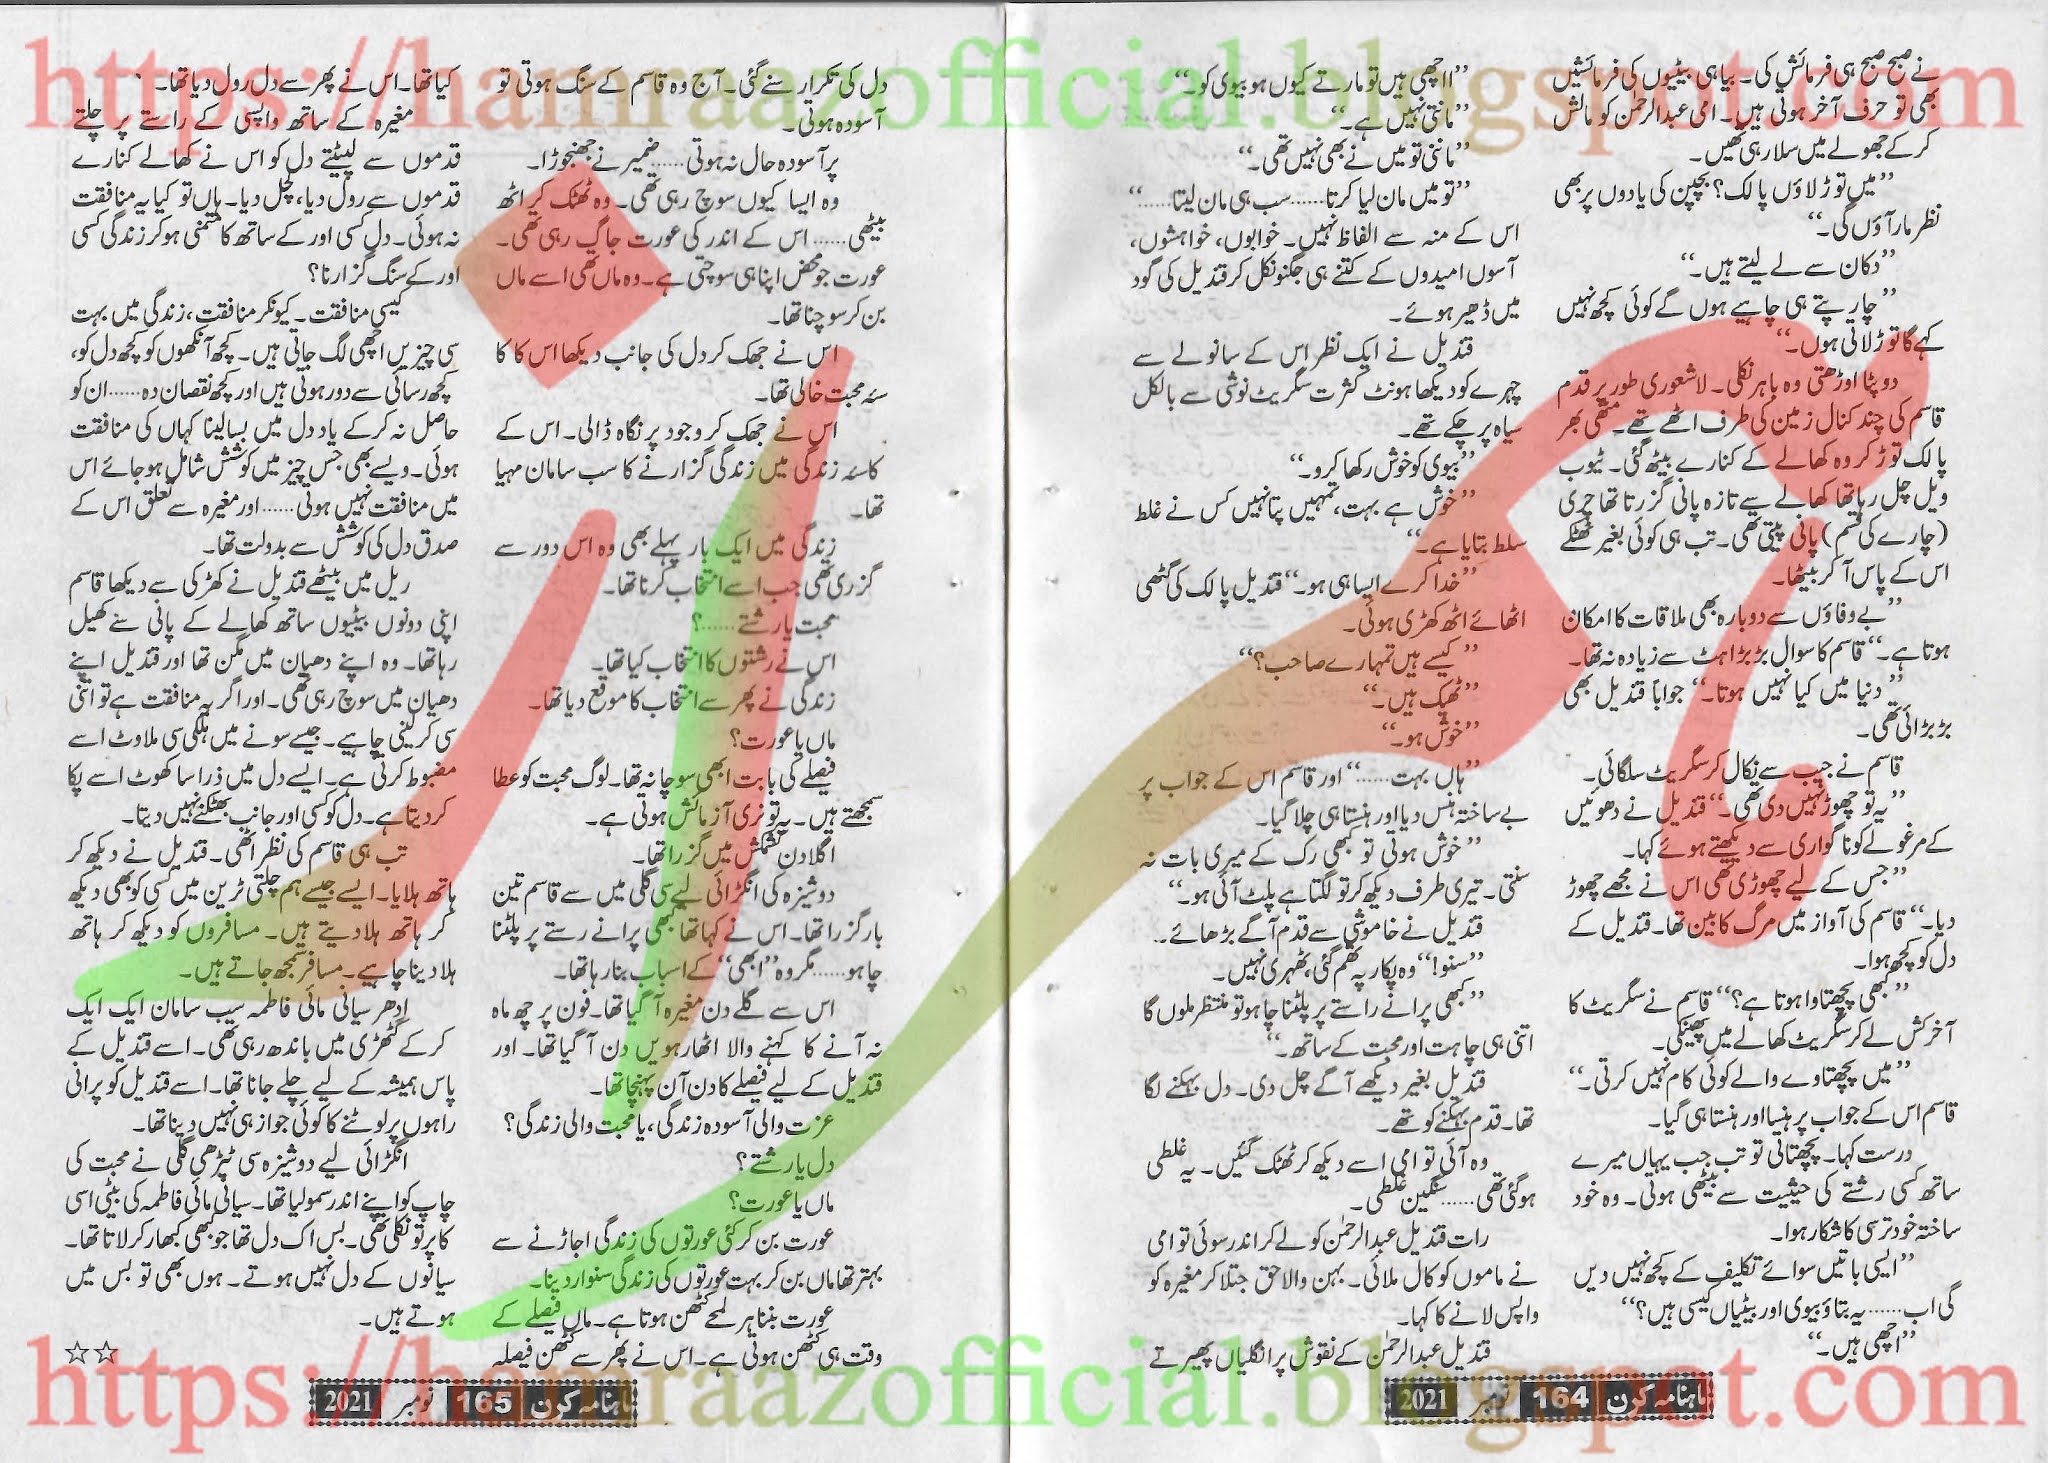 نے صبح صبح ہی فرمائش کی۔ بیاہی بیٹیوں کی فرمائشیں
بھی تو حرف آخر ہوتی ہیں۔ امی عبدالرحمٰن کو مالش
کر کے جھولے میں سلا رہی تھیں۔
’’میں توڑ لاؤں پالک؟ بچپن کی یادوں پر بھی
نظر مار آؤں گی۔‘‘
’’دکان سے لے لیتے ہیں۔‘‘
’’چار پتے ہی چاہیے ہوں گے کوئی کچھ نہیں
کہے گا توڑ لاتی ہوں۔‘‘
دوپٹا اوڑھتی وہ باہر نکلی۔ لاشعوری طور پر قدم
قاسم کی چند کنال زمین کی طرف اٹھے تھے۔ مٹھی بھر
پالک توڑ کر وہ کھالے کے کنارے بیٹھ گئی۔ ٹیوب
ویل چل رہا تھا کھالے سے تازہ پانی گزرتا تھا چری
(چارے کی قسم) پانی پیتی تھی۔ تب ہی کوئی بغیر ٹھٹکے
اس کے پاس آ کر بیٹھا۔
’’بے وفاؤں سے دوبارہ بھی ملاقات کا امکان
ہوتا ہے۔‘‘ قاسم کا سوال بڑبڑاہٹ سے زیادہ نہ تھا۔
’’دنیا میں کیا نہیں ہوتا۔‘‘ جواباً قندیل بھی
بڑبڑائی تھی۔
قاسم نے جیب سے نکال کر سگریٹ سلگائی۔
’’یہ تو چھوڑ نہیں دی تھی۔‘‘ قندیل نے دھوئیں
کے مرغولے کو ناگواری سے دیکھتے ہوئے کہا۔
’’جس کے لیے چھوڑی تھی اس نے مجھے چھوڑ
دیا۔‘‘ قاسم کی آواز میں مرگ کا بین تھا۔ قندیل کے
دل کو کچھ ہوا۔
’’کبھی پچھتاوا ہوتا ہے؟‘‘ قاسم نے سگریٹ کا
آخر کش لے کر سگریٹ کھالے میں پھینکی۔
’’میں پچھتاوے والے کوئی کام نہیں کرتی۔‘‘
قاسم اس کے جواب پر ہنسا اور ہنستا ہی گیا۔
درست کہا۔ پچھتاتی تو تب جب یہاں میرے
ساتھ کسی رشتے کی حیثیت سے بیٹھی ہوتی۔ وہ خود
ساختہ خود ترسی کا شکار ہوا۔
’’ایسی باتیں سوائے تکلیف کے کچھ نہیں دیں
گی اب...... یہ بتاؤ بیوی اور بیٹیاں کیسی ہیں؟‘‘
’’اچھی ہیں۔‘‘
’’اچھی ہیں تو مارتے کیوں ہو بیوی کو۔‘‘
’’مانتی نہیں ہے۔‘‘
’’مانتی تو میں نے بھی نہیں تھی۔‘‘
’’تو میں مان لیا کرتا...... سب ہی مان لیتا......‘‘
اس کے منہ سے الفاظ نہیں۔ خوابوں، خواہشوں،
آسوں امیدوں کے کتنے ہی جگنو نکل کر قندیل کی گود
میں ڈھیر ہوئے۔
قندیل نے ایک نظر اس کے سانولے سے
چہرے کو دیکھا ہونٹ کثرت سگریٹ نوشی سے بالکل
سیاہ پڑ چکے تھے۔
’’بیوی کو خوش رکھا کرو۔‘‘
’’خوش ہے بہت، تمہیں پتا نہیں کس نے غلط
سلط بتایا ہے۔‘‘
’’خدا کرے ایسا ہی ہو۔‘‘ قندیل پالک کی گٹھی
اٹھائے اٹھ کھڑی ہوئی۔
’’کیسے ہیں تمہارے صاحب؟‘‘
’’ٹھیک ہیں۔‘‘
’’خوش ہو۔‘‘
’’ہاں بہت......‘‘ اور قاسم اس کے جواب پر
بے ساختہ ہنس دیا اور ہنستا ہی چلا گیا۔
’’خوش ہوتی تو کبھی رک کے میری بات نہ
سنتی۔ تیری طرف دیکھ کر تو لگتا ہے پلٹ آئی ہو۔‘‘
قندیل نے خاموشی سے قدم آگے بڑھائے۔
’’سنو!‘‘ وہ پکار پہ تھم گئی، ٹھہری نہیں۔
’’کبھی پرانے راستے پر پلٹنا چاہو تو منتظر ملوں گا
اتنی ہی چاہت اور محبت کے ساتھ۔‘‘
قندیل بغیر دیکھے آگے چل دی۔ دل بہکنے لگا
تھا۔ قدم بہکنے کو تھے۔
وہ آئی تو امی اسے دیکھ کر ٹھٹک گئیں۔ یہ غلطی
ہو گئی تھی...... سنگین غلطی۔
رات قندیل عبدالرحمٰن کو لے کر اندر سوئی تو امی
نے ماموں کو کال ملائی۔ بہن والا حق جتلا کر مغیرہ کو
واپس لانے کا کہا۔
قندیل عبدالرحمٰن کے نقوش پر انگلیاں پھیرتے
ماہنامہ کرن 164 نومبر 2021
دل کی تکرار سنے گئی۔ آج وہ قاسم کے سنگ ہوتی تو
آسودہ ہوتی۔
پر آسودہ حال نہ ہوتی...... ضمیر نے جھنجوڑا۔
وہ ایسا کیوں سوچ رہی تھی۔ وہ ٹھٹک کر اٹھ
بیٹھی...... اس کے اندر کی عورت جاگ رہی تھی۔
عورت جو محض اپنا ہی سوچتی ہے۔ وہ ماں تھی اسے ماں
بن کر سوچنا تھا۔
اس نے جھک کر دل کی جانب دیکھا اس کا کا
سۂ محبت خالی تھا۔
اس نے جھک کر وجود پر نگاہ ڈالی۔ اس کے
کاسۂ زندگی میں زندگی گزارنے کا سب سامان مہیا
تھا۔
زندگی میں ایک بار پہلے بھی وہ اس دور سے
گزری تھی جب اسے انتخاب کرنا تھا۔
محبت یا رشتے......؟
اس نے رشتوں کا انتخاب کیا تھا۔
زندگی نے پھر سے انتخاب کا موقع دیا تھا۔
ماں یا عورت؟
فیصلے کی بابت ابھی سوچا نہ تھا۔ لوگ محبت کو عطا
سمجھتے ہیں۔ یہ تو نری آزمائش ہوتی ہے۔
اگلا دن کشمکش میں گزرا تھا۔
دوشیزہ کی انگڑائی لیے سی گلی میں سے قاسم تین
بار گزرا تھا۔ اس نے کہا تھا کبھی پرانے رستے پر پلٹنا
چاہو...... مگر وہ ’’ابھی‘‘ کے اسباب بنا رہا تھا۔
اس سے گلے دن مغیرہ آ گیا تھا۔ فون پر چھ ماہ
نہ آنے کا کہنے والا اٹھارہویں دن آ گیا تھا۔ اور
قندیل کے لیے فیصلے کا دن آن پہنچا تھا۔
عزت والی آسودہ زندگی، یا محبت والی زندگی؟
دل یا رشتے؟
ماں یا عورت؟
عورت بن کر کئی عورتوں کی زندگی اجاڑنے سے
بہتر تھا ماں بن کر بہت عورتوں کی زندگی سنوار دینا۔
عورت بننا ہر لمحے کٹھن ہوتا ہے۔ ماں فیصلے کے
وقت ہی کٹھن ہوتی ہے۔ اس نے پھر سے کٹھن فیصلہ
کیا تھا۔ اس نے پھر سے دل رول دیا تھا۔
مغیرہ کے ساتھ واپسی کے راستے پر چلتے
قدموں سے لپٹتے دل کو اس نے کھالے کنارے
قدموں سے رول دیا، کچل دیا۔ ہاں تو کیا یہ منافقت
نہ ہوئی۔ دل کسی اور کے ساتھ کا متمنی ہو کر زندگی کسی
اور کے سنگ گزارنا؟
کیسی منافقت۔ کیونکر منافقت، زندگی میں بہت
سی چیزیں اچھی لگ جاتی ہیں۔ کچھ آنکھوں کو کچھ دل کو،
کچھ رسائی سے دور ہوتی ہیں اور کچھ نقصان دہ...... ان کو
حاصل نہ کر کے یاد دل میں بسا لینا کہاں کی منافقت
ہوئی۔ ویسے بھی جس چیز میں کوشش شامل ہو جائے اس
میں منافقت نہیں ہوتی...... اور مغیرہ سے تعلق اس کے
صدق دل کی کوشش سے بدولت تھا۔
ریل میں بیٹھے قندیل نے کھڑکی سے دیکھا قاسم
اپنی دونوں بیٹیوں ساتھ کھالے کے پانی سے کھیل
رہا تھا۔ وہ اپنے دھیان میں مگن تھا اور قندیل اپنے
دھیان میں سوچ رہی تھی۔ اور اگر یہ منافقت ہے تو اتنی
سی کر لینی چاہیے۔ جیسے سونے میں ہلکی سی ملاوٹ اسے
مضبوط کرتی ہے۔ ایسے دل میں ذرا سا کھوٹ اسے پکا
کر دیتا ہے۔ دل کو کسی اور جانب بھٹکنے نہیں دیتا۔
تب ہی قاسم کی نظر اٹھی۔ قندیل نے دیکھ کر
ہاتھ ہلایا۔ ایسے جیسے ہم چلتی ٹرین میں کسی کو بھی دیکھ
کر ہاتھ ہلا دیتے ہیں۔ مسافروں کو دیکھ کر ہاتھ
ہلا دینا چاہیے۔ مسافر سمجھ جاتے ہیں۔
ادھر سیانی مائی فاطمہ سیب سامان ایک ایک
کر کے گٹھڑی میں باندھ رہی تھی۔ اسے قندیل کے
پاس ہمیشہ کے لیے چلے جانا تھا۔ اسے قندیل کو پرانی
راہوں پر لوٹنے کا کوئی جواز ہی نہیں دینا تھا۔
انگڑائی لیے دوشیزہ سی ٹیڑھی گلی نے محبت کی
چاپ کو اپنے اندر سمو لیا تھا۔ سیانی مائی فاطمہ کی بیٹی اسی
کا پرتو نکلی تھی۔ بس اک دل تھا جو کبھی کبھار کرلاتا تھا۔
سیانوں کے دل نہیں ہوتے۔ ہوں بھی تو بس میں
ہوتے ہیں۔
☆☆
ماہنامہ کرن 165 نومبر 2021
https://hamraazofficial.blogspot.com
ہمراز
https://hamraazofficial.blogspot.com